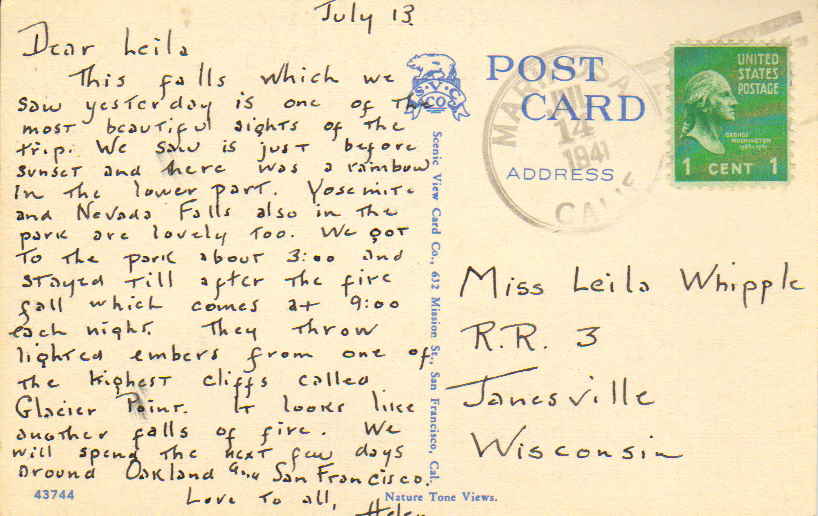 July 13
Dear Leila
This falls which we
saw yesterday is one of the
most beautiful sights of the
trip. We saw is just before
sunset and there was a rainbow
in the lower part. Yosemite
and Nevada Falls also in the
park are lovely too. We got
to the park about 3:00 and
stayed till after the fire
fall which comes at 9:00
each night. They throw
lighted embers from one of
the highest cliffs called
Glacier Point. It looks like
another falls of fire. We
will spend the next few days
around Oakland and San Francisco.
Love to all,
Helen
43744
S.V.C.
CO.
Scenic View Card Co., 632 Mission St., San Francisco, Cal.
Nature Tone Views.
POST
CARD
ADDRESS
JUL
14
1941
CALIF
UNITED
STATES
POSTAGE
GEORGE
WASHINGTON
1 CENT 1
Miss Leila Whipple
R.R. 3
Janesville
Wisconsin